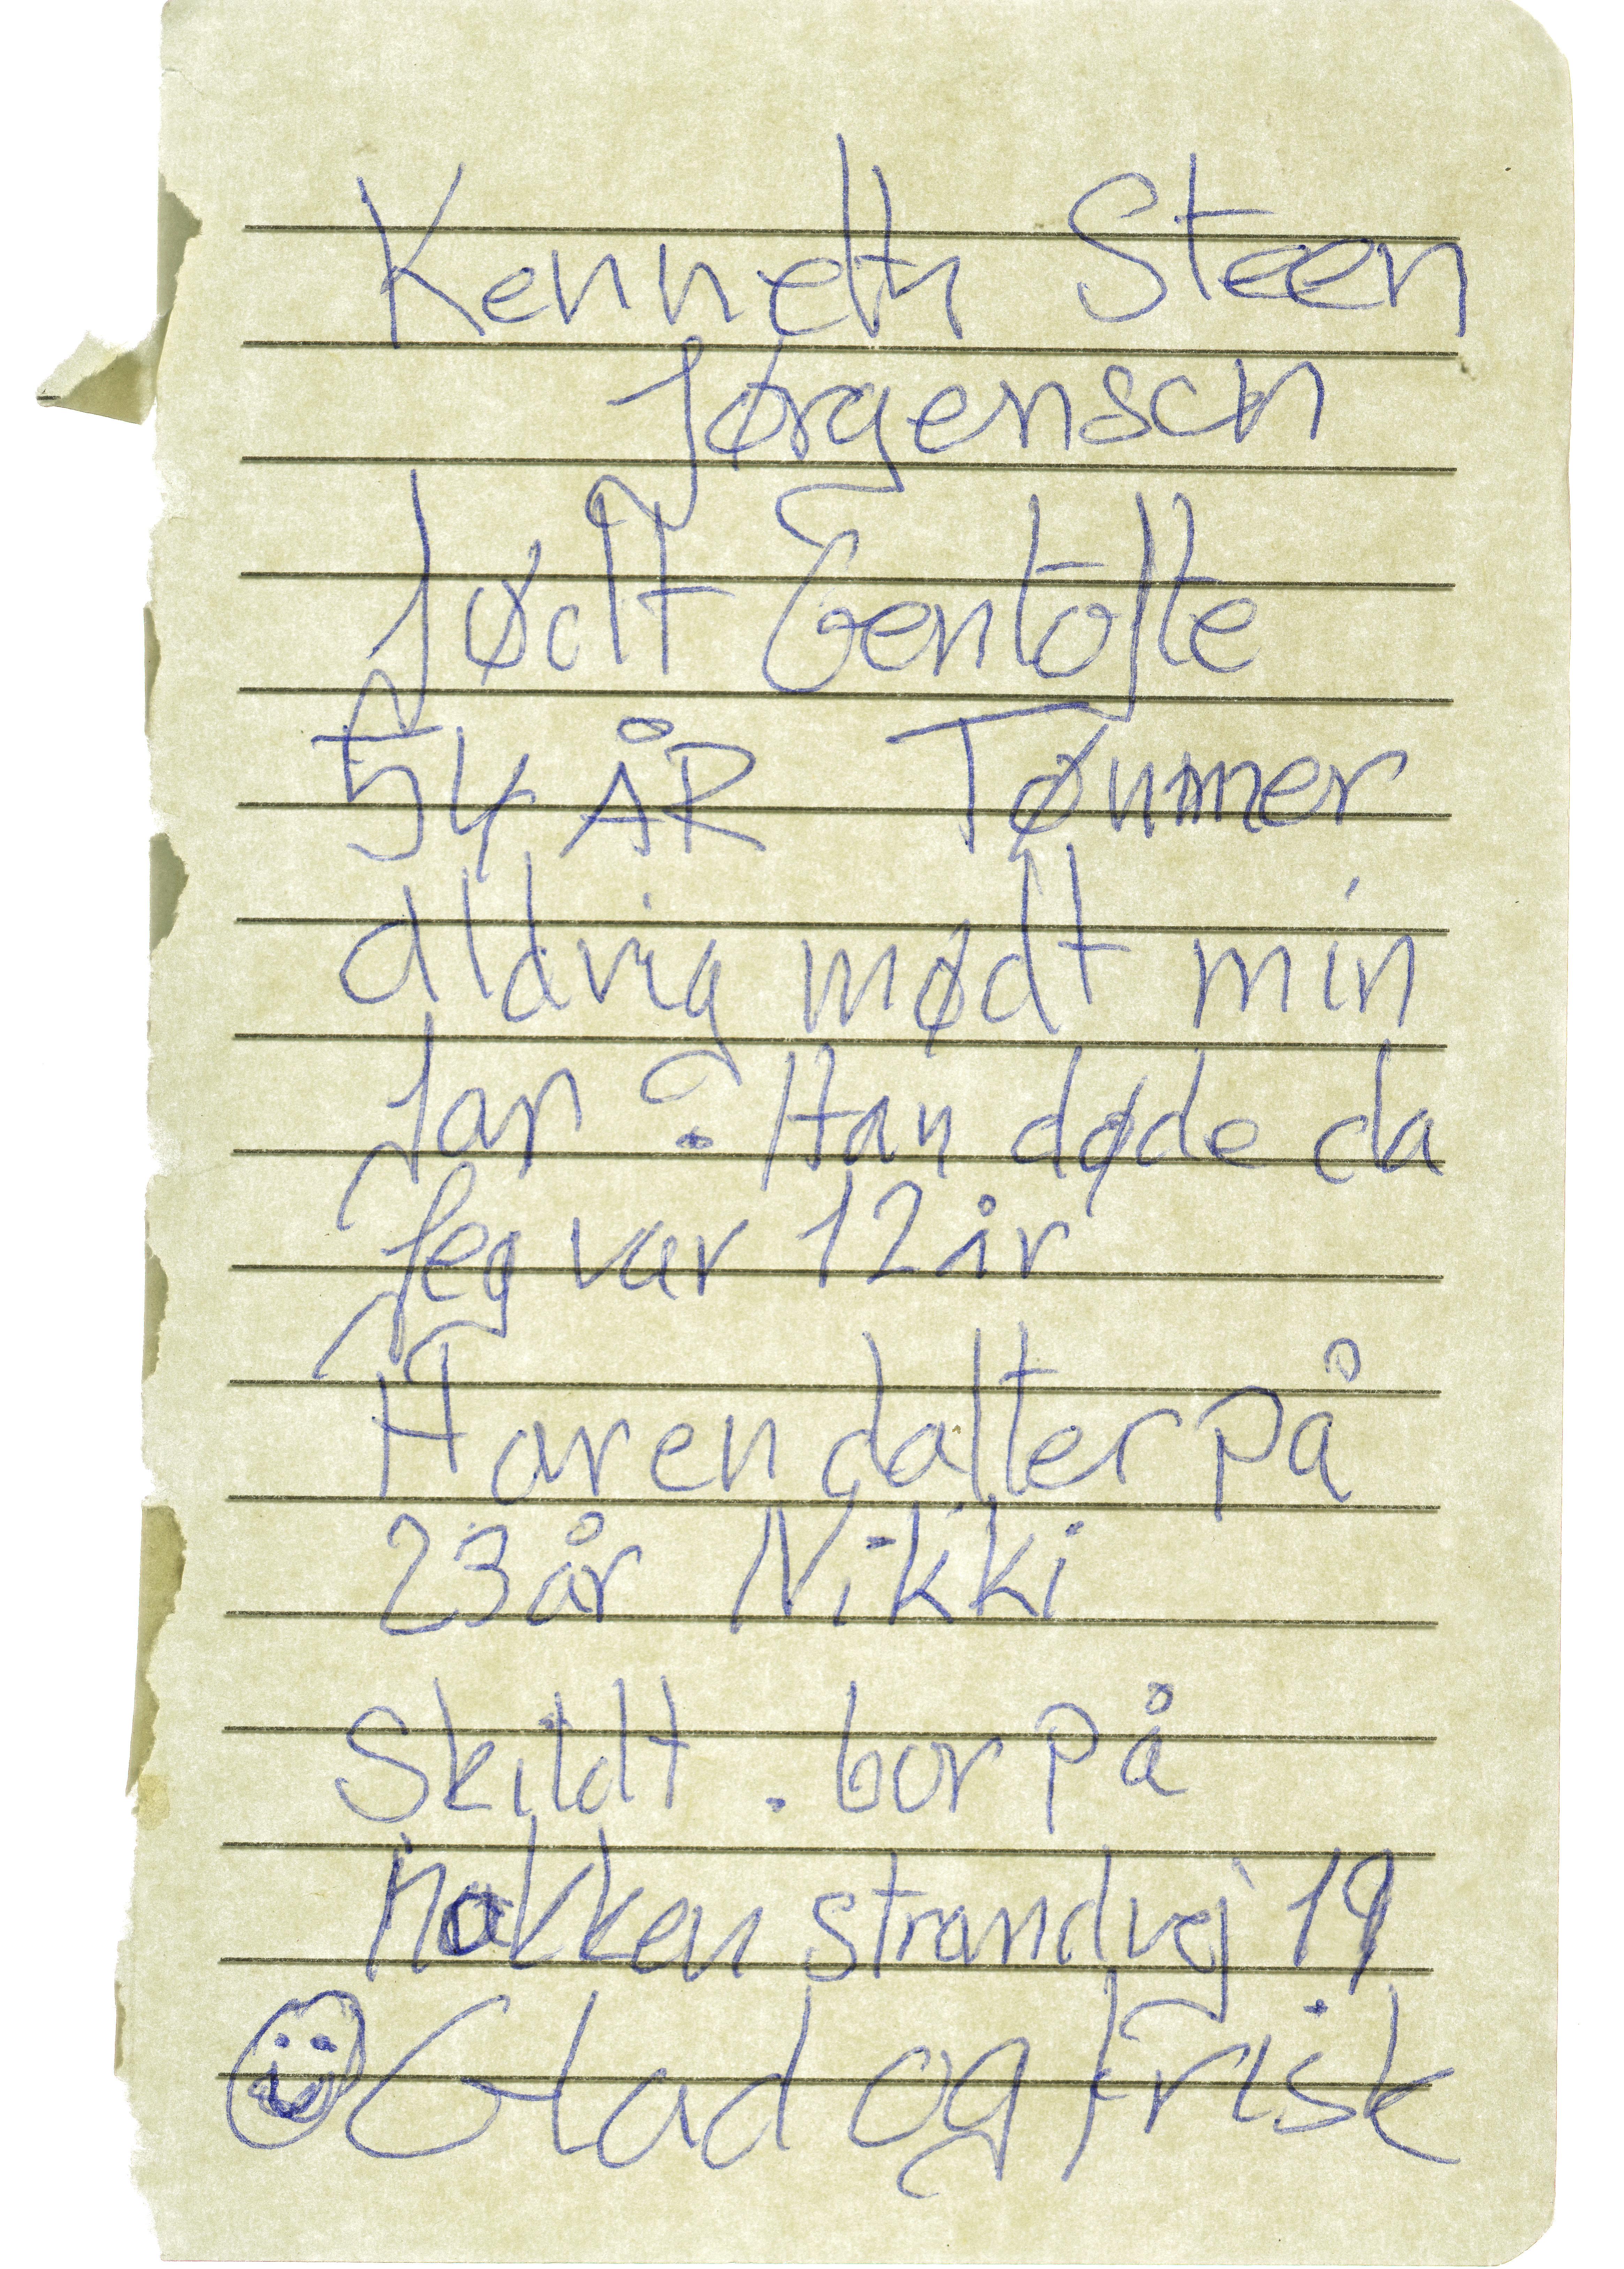 Kenneth Steen
Jørgensen
født Gentofte
54 ÅR Tømmer
aldrig mødt min
far. Han døde da
Jeg var 12 år
Har en datter på
23 år Nikki
Skildt. bor på
nakken strandvej 19
Glad og Frisk